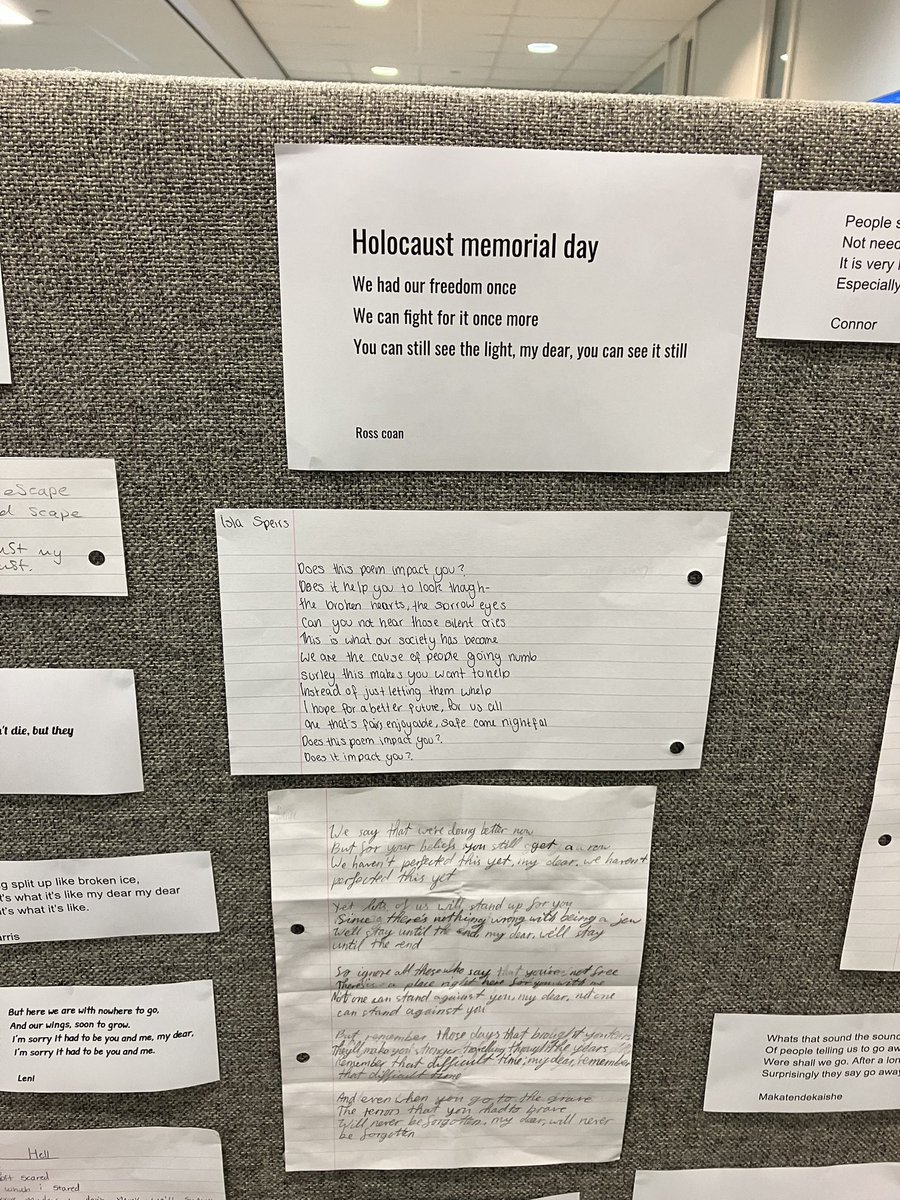 Holocaust memorial day
We had our freedom once
We can fight for it once more
You can still see the light, my dear, you can see it still
Ross coan
People s
Not need
It is very
Especially
Connor
escape
d scape
ust my
ust.
Isla Speirs
Does this poem impact you?
Does it help you to look though-
the broken hearts, the sorrow eyes
Can you not hear those silent cries
This is what our society has become
We are the cause of people going numb
surley this makes you want to help
Instead of just letting them whelp
I hope for a better future, for us all
one that's fair, enjoyable, safe come nightfal
Does this poem impact you?
Does it impact you?
't die, but they
We say that we're doing better now
But for your beliefs you still get a row
We haven't perfected this yet, my dear, we haven't
perfected this yet
Yet lots of us will stand up for you
Since there's nothing wrong with being a jew
We'll stay until the end, my dear, we'll stay
until the end
So ignore all those who say that you're not free
There's a place right here for you with me
Not one can stand against you, my dear, not one
can stand against you
But remember those days that brought you tears
They'll make you stronger travelling through the years
remember that difficult time, my dear, remember
that difficult time
And even when you go to the grave
The terrors that you had to brave
Will never be forgotten, my dear, will never
be forgotten
g split up like broken ice,
t's what it's like my dear my dear
t's what it's like.
arris
But here we are with nowhere to go,
And our wings, soon to grow.
I'm sorry it had to be you and me, my dear,
I'm sorry it had to be you and me.
Leni
Whats that sound the sound
Of people telling us to go aw
Were shall we go. After a lon
Surprisingly they say go away
Makatendekaishe
Hell
bit scared
which I stared